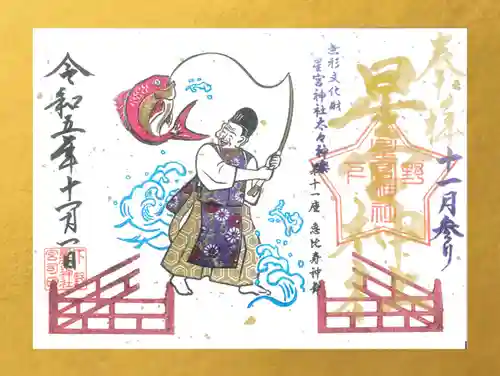 奉拝
十一月参り
星宮神社
下野
星宮神社
無形文化財
星宮神社太々神楽
第十一座 恵比寿神舞
令和五年十一月一日